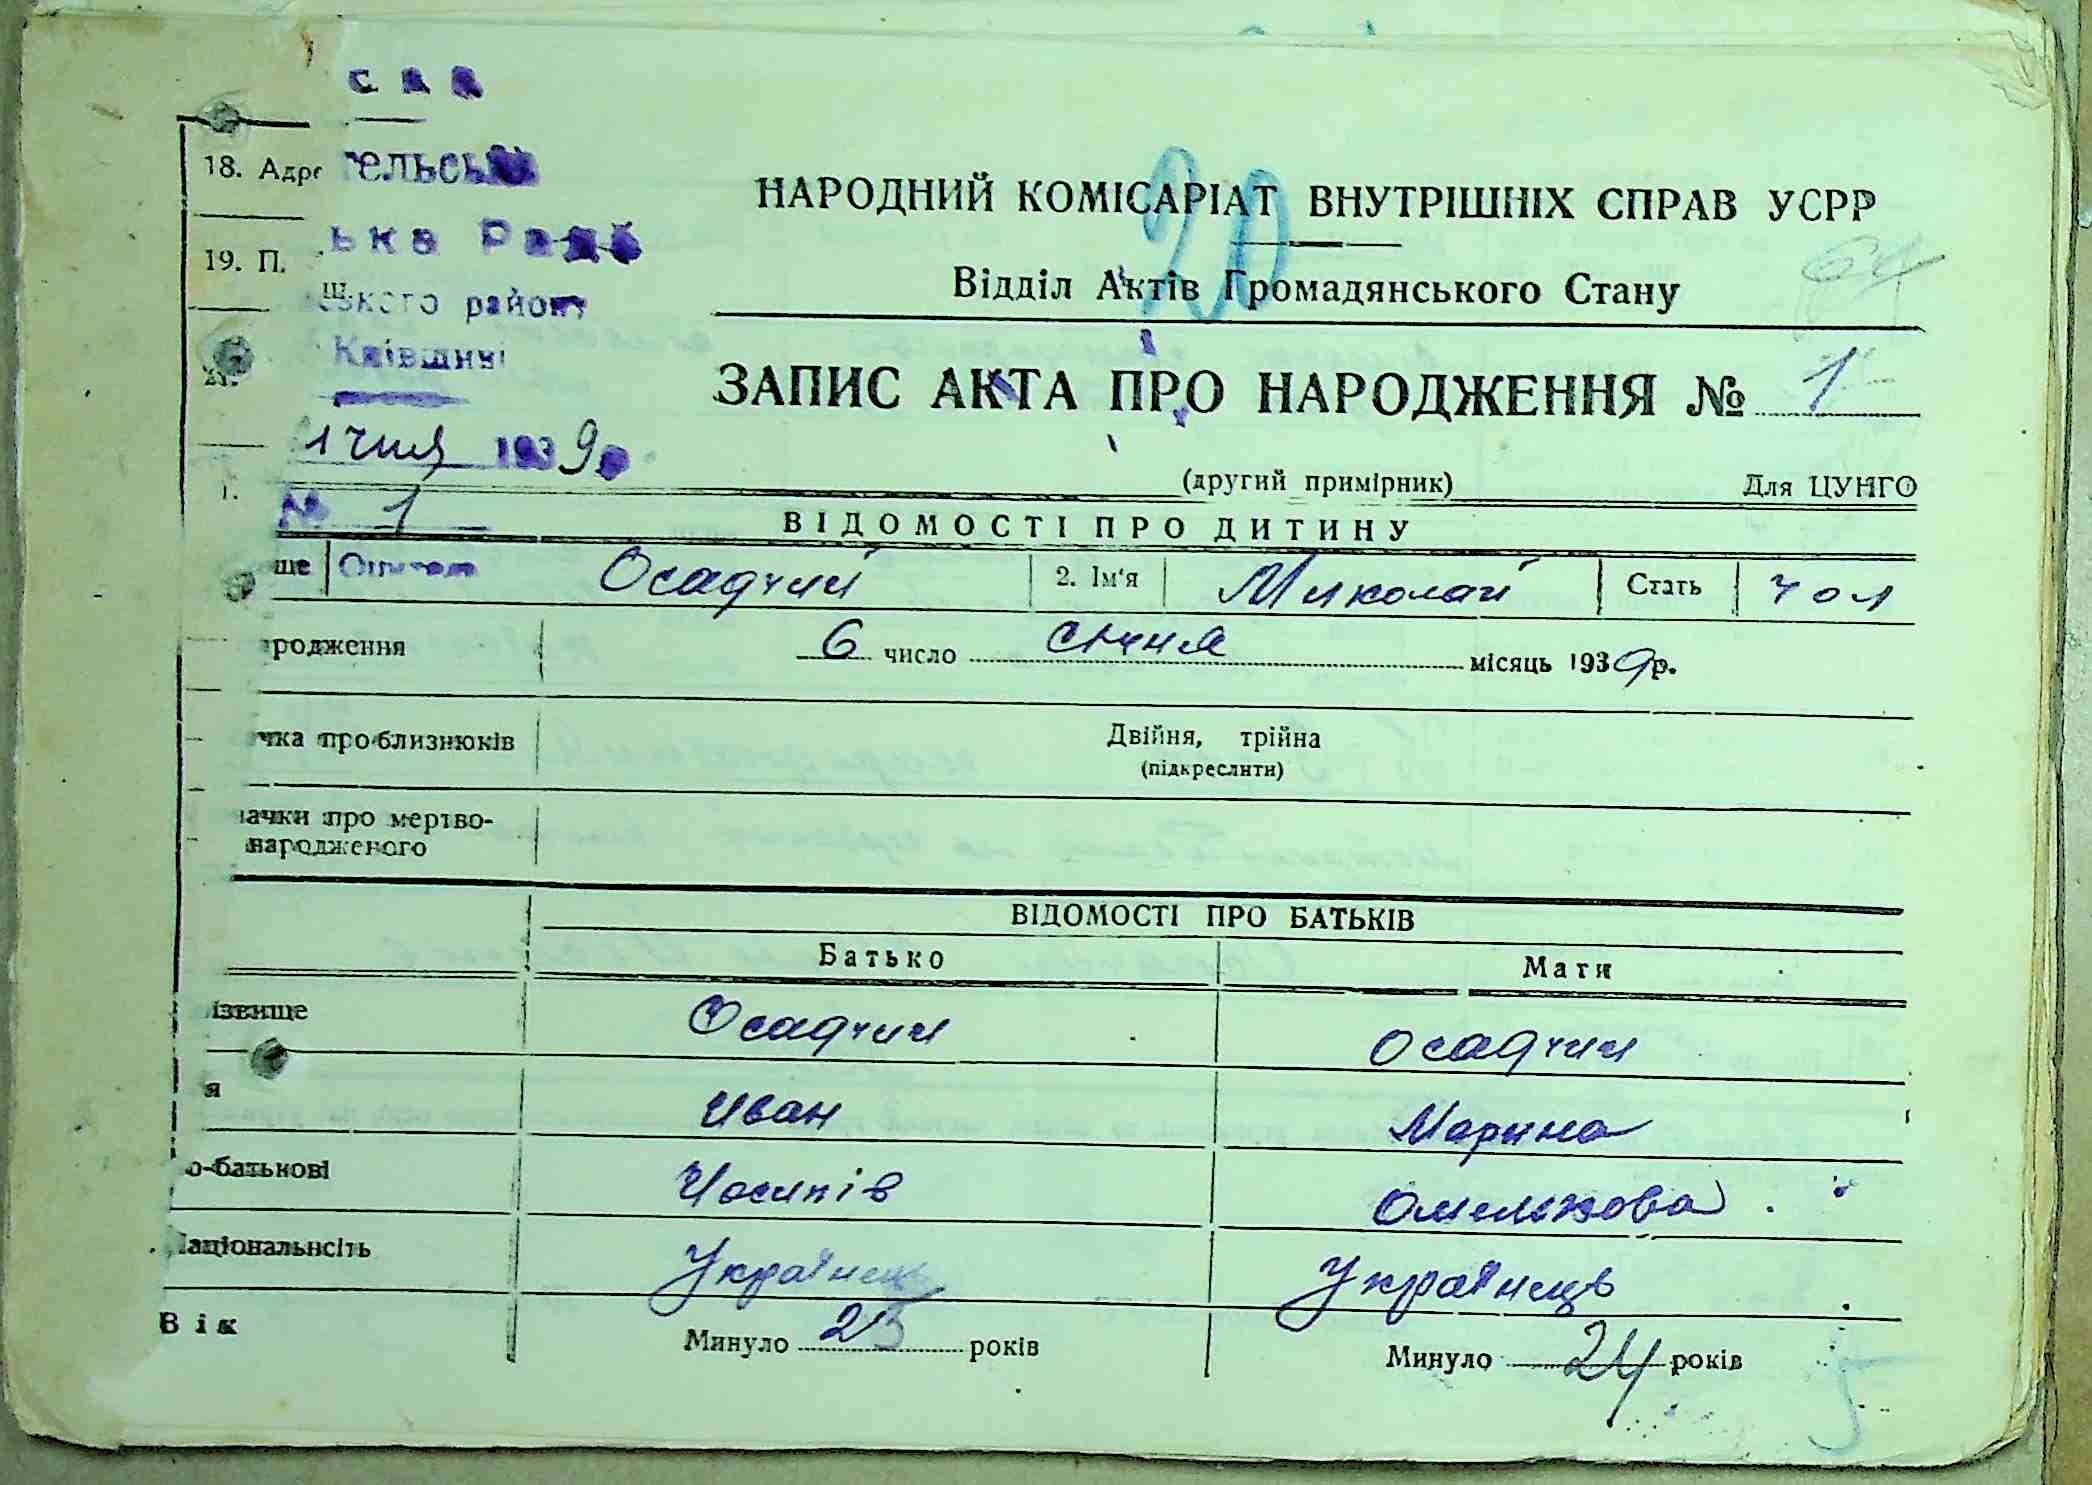 18. Адре
тельська
ька Рада
19. П.
ського району
Київщині
1 чня 1939р
№ 1
20
НАРОДНИЙ КОМІСАРІАТ ВНУТРІШНІХ СПРАВ УСРР
64
Відділ Актів Громадянського Стану
ЗАПИС АКТА ПРО НАРОДЖЕННЯ № 1
(другий примірник) Для ЦУНГО
ВІДОМОСТІ ПРО ДИТИНУ
ще Осадчий 2. Ім'я Миколай Стать чол
родження 6 число січня місяць 1939р.
чка про близнюків Двійня, трійна
(підкреслити)
ачки про мертво-
народженого
ВІДОМОСТІ ПРО БАТЬКІВ
Батько Мати
ізвище Осадчий Осадчий
я Иван Марина
о-батькові Йосипів Омелькова
Національність Українець Українець
Вік Минуло 25 років Минуло 24 років
5